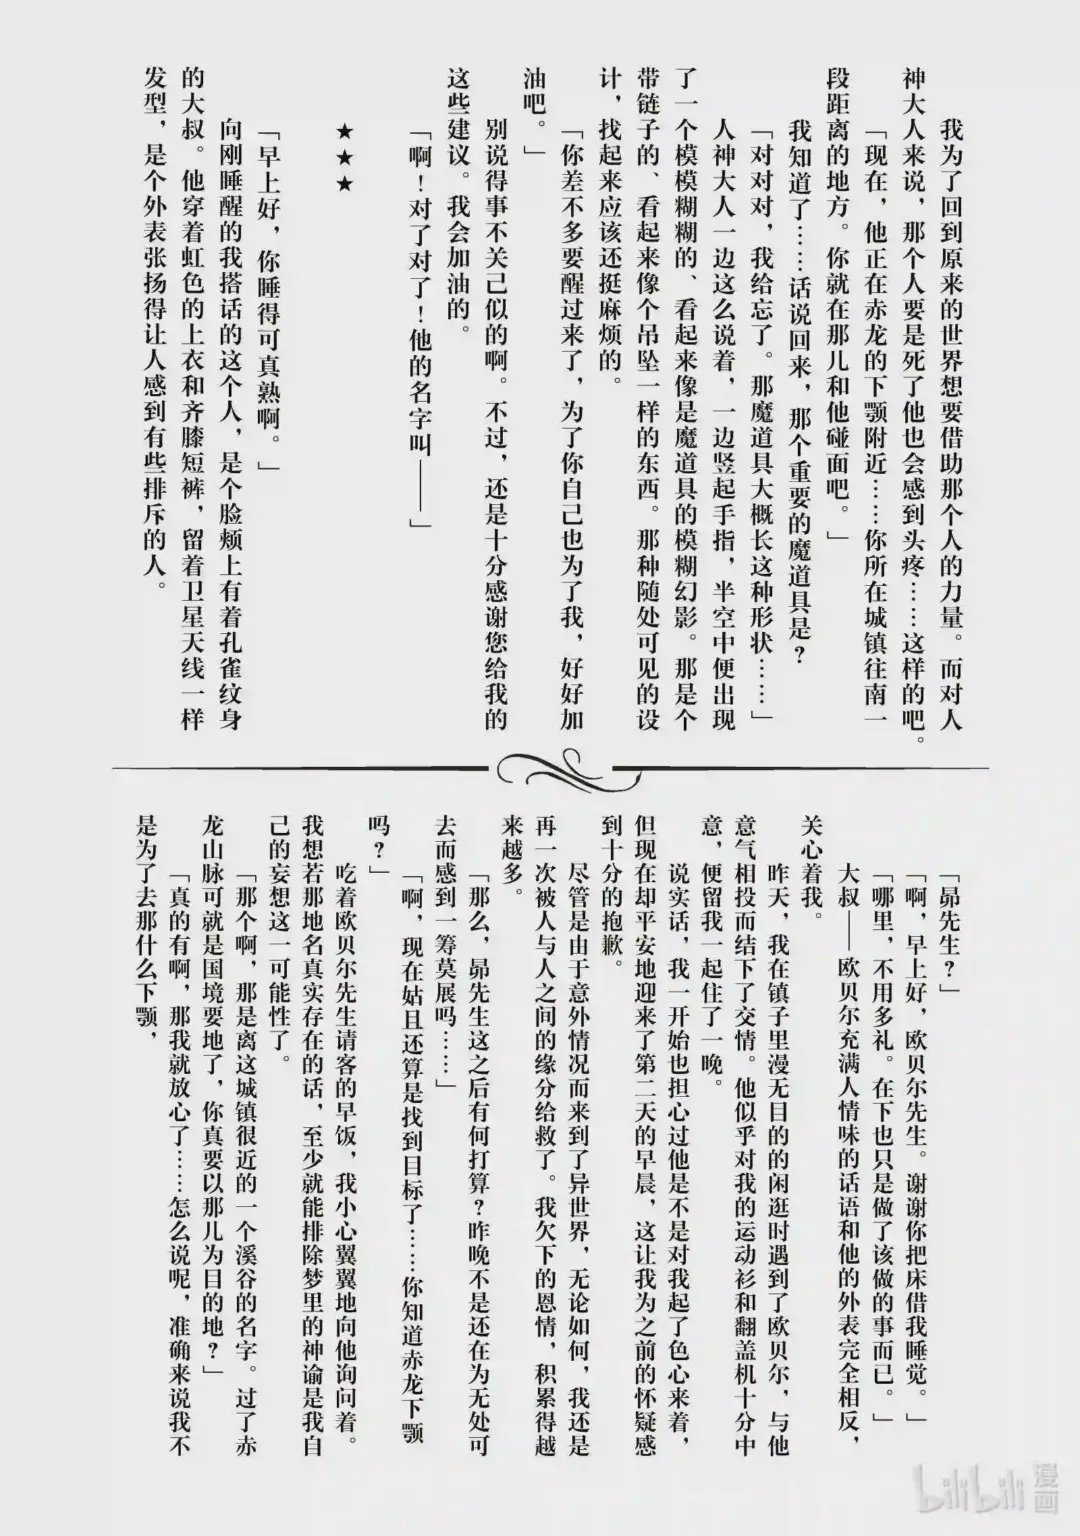 我为了回到原来的世界想要借助那个人的力量。而对人
神大人来说，那个人要是死了他也会感到头疼……这样的吧。
「现在，他正在赤龙的下颚附近……你所在城镇往南一
段距离的地方。你就在那儿和他碰面吧。」
我知道了……话说回来，那个重要的魔道具是?
「对对对，我给忘了。那魔道具大概长这种形状……」
人神大人一边这么说着，一边竖起手指，半空中便出现
了一个模模糊糊的、看起来像是魔道具的模糊幻影。那是个
带链子的、看起来像个吊坠一样的东西。那种随处可见的设
计，找起来应该还挺麻烦的。
「你差不多要醒过来了，为了你自己也为了我，好好加
油吧。」
别说得事不关己似的啊。不过，还是十分感谢您给我的
这些建议。我会加油的。
「啊!对了对了!他的名字叫——」
★★★
「早上好，你睡得可真熟啊。」
向刚睡醒的我搭话的这个人，是个脸颊上有着孔雀纹身
的大叔。他穿着虹色的上衣和齐膝短裤，留着卫星天线一样
发型，是个外表张扬得让人感到有些排斥的人。
「昴先生?」
「啊，早上好，欧贝尔先生。谢谢你把床借我睡觉。」
「哪里，不用多礼。在下也只是做了该做的事而已。」
大叔——欧贝尔充满人情味的话语和他的外表完全相反，
关心着我。
昨天，我在镇子里漫无目的的闲逛时遇到了欧贝尔，与他
意气相投而结下了交情。他似乎对我的运动衫和翻盖机十分中
意，便留我一起住了一晚。
说实话，我一开始也担心过他是不是对我起了色心来着，
但现在却平安地迎来了第二天的早晨，这让我为之前的怀疑感
到十分的抱歉。
尽管是由于意外情况而来到了异世界，无论如何，我还是
再一次被人与人之间的缘分给救了。我欠下的恩情，积累得越
来越多。
「那么，昴先生这之后有何打算?昨晚不是还在为无处可
去而感到一筹莫展吗……」
「啊，现在姑且还算是找到目标了……你知道赤龙下颚
吗?」
吃着欧贝尔先生请客的早饭，我小心翼翼地向他询问着。
我想若那地名真实存在的话，至少就能排除梦里的神谕是我自
己的妄想这一可能性了。
「那个啊，那是离这城镇很近的一个溪谷的名字。过了赤
龙山脉可就是国境要地了，你真要以那儿为目的地?」
「真的有啊，那我就放心了……怎么说呢，准确来说我不
是为了去那什么下颚，
bilibili漫画